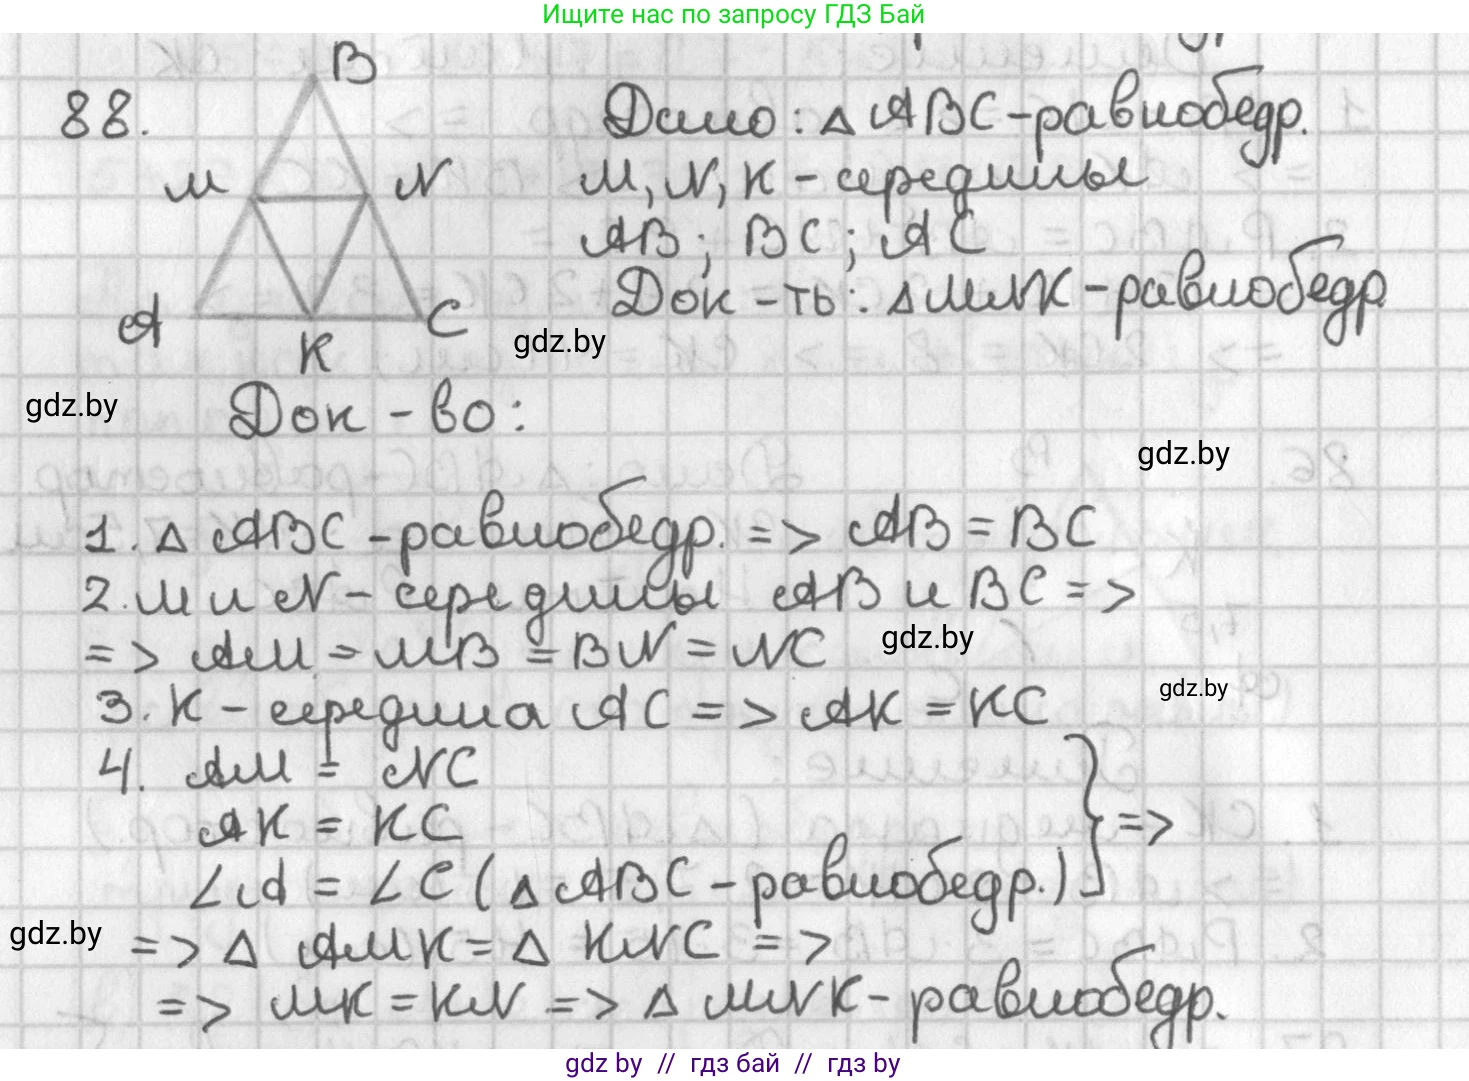 Ищите нас по запросу ГДЗ Бай
88.
B
M
N
A
K
C
Дано: △ ABC - равнобедр.
M, N, K - середины
AB; BC; AC
Док - ть: △ MNK - равнобедр.
gdz.by
gdz.by
Док - во:
gdz.by
1. △ ABC - равнобедр. => AB = BC
2. M и N - середины AB и BC =>
=> AM = MB = BN = NC
gdz.by
3. K - середина AC => AK = KC
gdz.by
4. AM = NC
AK = KC
∠A = ∠C (△ ABC - равнобедр.) } =>
gdz.by
=> △ AMK = △ KNC =>
=> MK = KN => △ MNK - равнобедр.
gdz by // гдз бай // гдз by